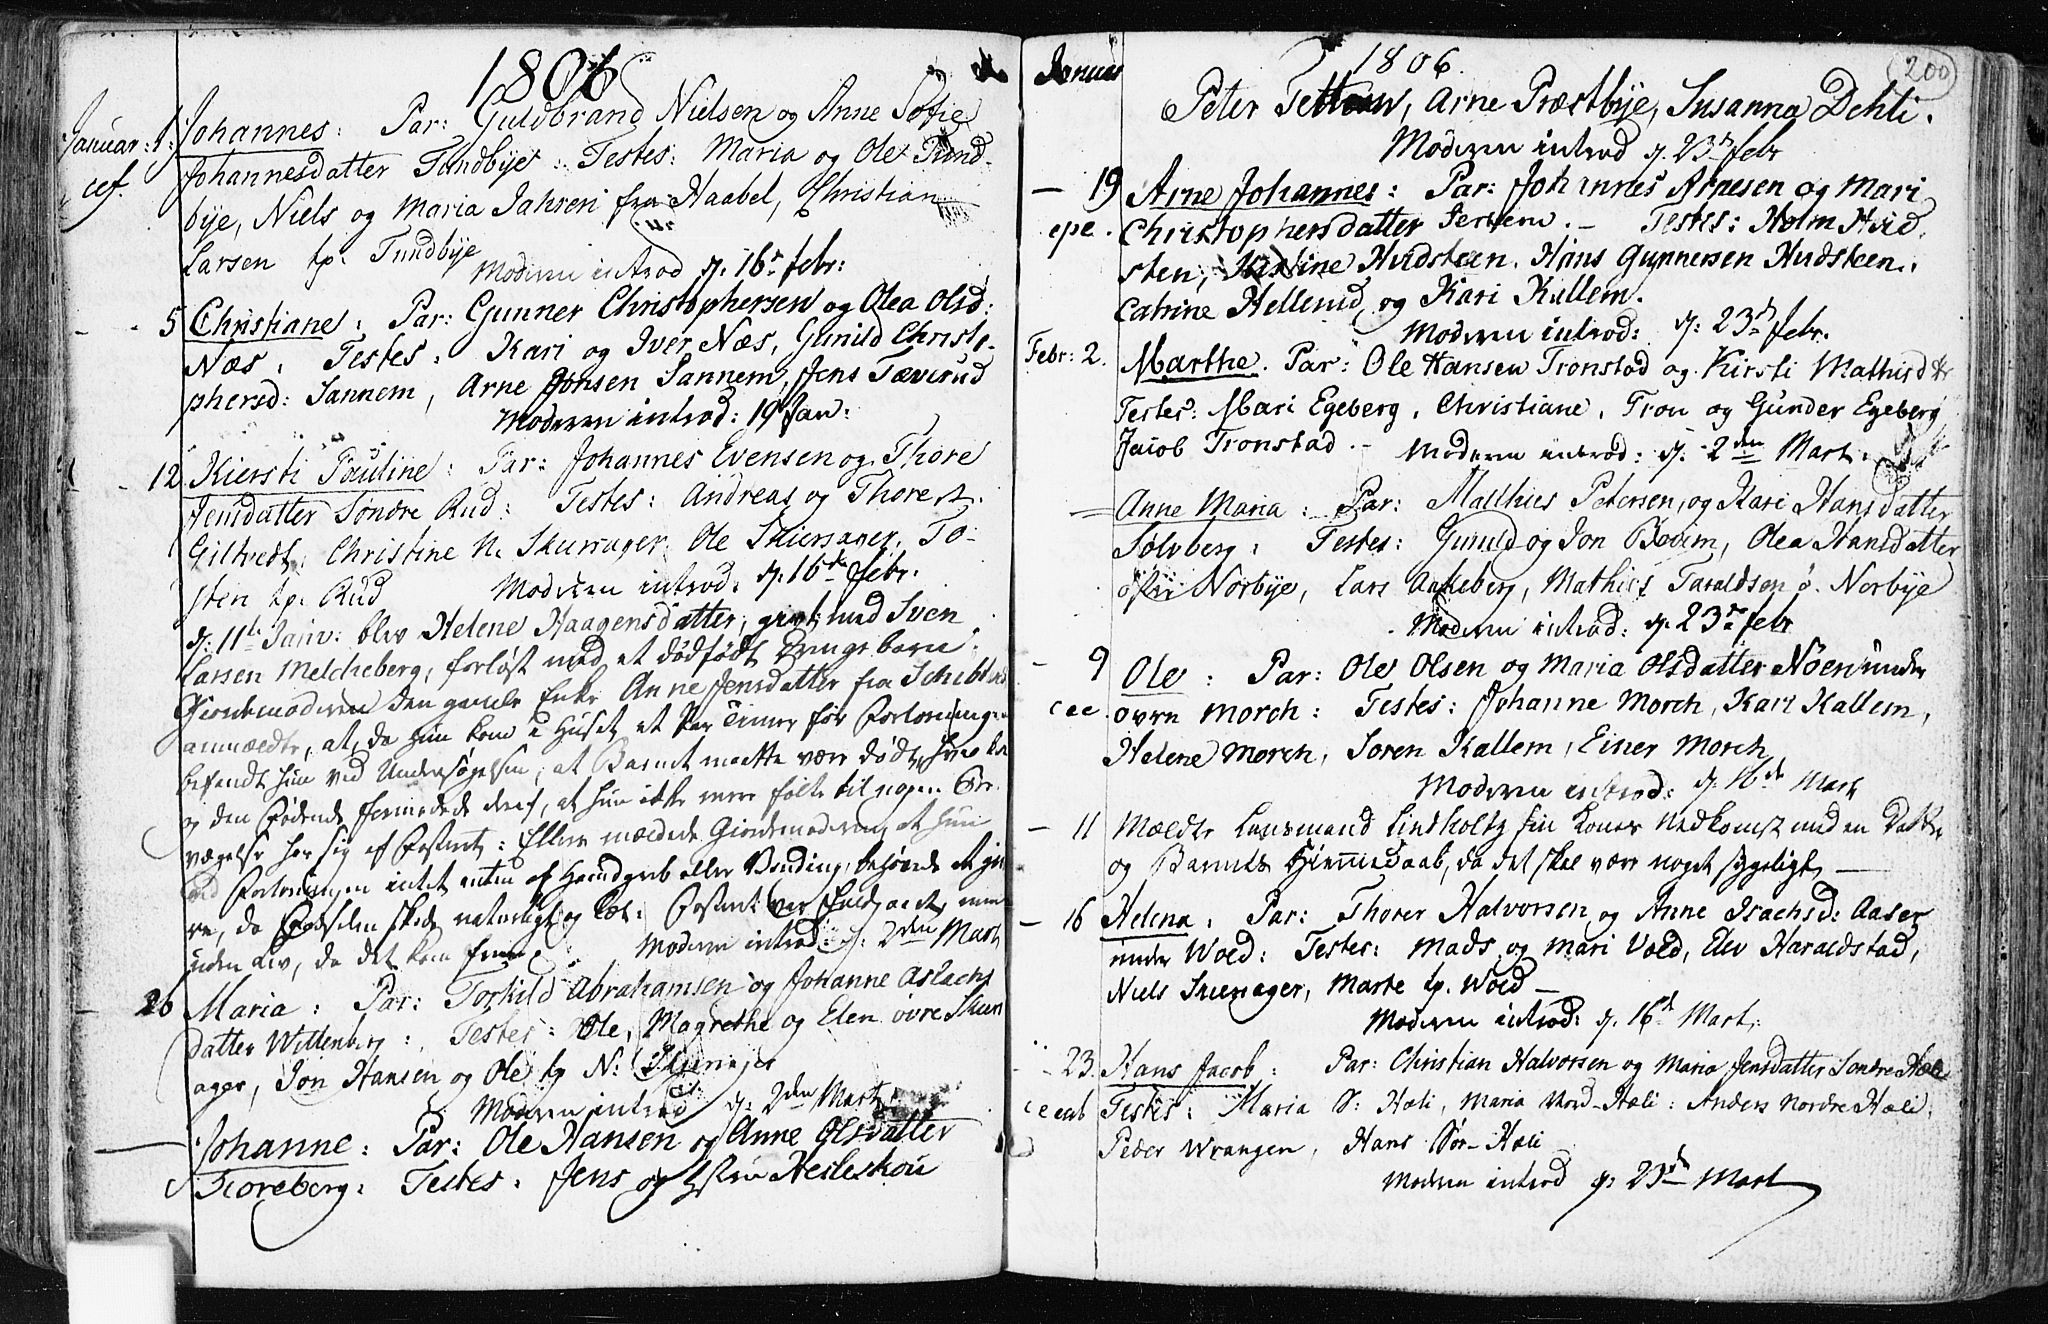 1806
Januar: 1: Johannes: Par: Guldbrand Nielsen og Anne Sofie
cef. Johannesdatter Tundbye: Testes: Maria og Ole Tund-
bye, Niels og Maria Jahren fra Haabel, Christian
Larsen tp. Tundbye
Moderen introd d. 16de febr:
5 Christiane: Par: Gunner Christophersen og Olea Olsd:
Næs: Testes: Kari og Iver Næs, Gunild Christo-
phersd: Sannem, Arne Jonsen Sannem, Jens Tæverud
Moderen introd: 19 Jan:
12 Kiersti Pauline: Par: Johannes Evensen og Thore
Jensdatter Søndre Rud: Testes: Andreas og Thore
Giltvedt, Christine N. Skuerager, Ole Skiersager, To-
sten tp. Rud Moderen introd: d. 16de febr.
d: 11te Janv: blev Helene Haagensdatter, givt med Sven
Larsen Melcheberg, forløst med et dødfødt Drengebarn.
Giordemoderen den gamle Enke Anne Jensdatter fra
anmældte, at, da hun kom i Huset et Par Timer før Forløsningen
befandt hun ved Undersøgelsen, at Barnet maatte være dødt,
og den Fødende formodede deraf, at hun ikke mere følte til nogen Be-
vægelse hos sig af Fosteret: Ellers mældede Giordemoderen, at hun
ved Forløsningen intet enten af Haandgreb eller Vending behøvede at giø-
re, da Fødselen skede naturligt og let: Fosteret var fuldbaaret, men
uden Liv, da det kom frem. Moderen introd: d: 2den Mart
26 Maria: Par: Torkild Abrahamsen og Johanne Aslachs
datter Wittenberg: Testes: Ole, Magrethe og Elen øvre Skuer
ager, Jon Hansen og Ole tp N: Skuerager
Moderen introd d: 2den Mart
Johanne: Par: Ole Hansen og Anne Olsdatter
Toreberg: Testes: Jens og Heileskou
Januar 1806. 200
Peter Tettow, Arne Præstbye, Susanna Dehli.
Moderen introd d. 23de febr
— 19 Arne Johannes: Par: Johannes Arnesen og Mari
epe. Christophersdatter Jersem. — Testes: Holm Hvid-
sten, Kistine Hvidsteen, Hans Gunnersen Hvidsteen,
Catrine Hellerud og Kari Kallem.
Moderen introd: d: 23de febr.
Febr: 2. Marthe. Par: Ole Hansen Tronstad og Kirsti Mathisdtr
Testes: Mari Egeberg, Christiane, Tron og Gunder Egeberg
Jacob Tronstad. — Moderen introd: d: 2den Mart.
= Anne Maria: Par: Matthies Petersen, og Kari Hansdatter
Solvberg: Testes: Gunild og Jon Bovim, Olea Hansdatter
Norbye, Lars Aacheberg, Mathies Taraldsen ø. Norbye
Moderen introd: d. 23de febr
— 9 Ole: Par: Ole Olsen og Maria Olsdatter Nøen under
øvre Morch: Testes: Johanne Morch, Kari Kallem,
Helene Morch, Soren Kallem, Einer Morch
Moderen introd: d. 16de Mart
— 11 Mældte Lensmand Lindholtz sin Kones Nedkomst med en Datter
og Barnets Hiemmedaab, da det skal være noget sygeligt —
— 16 Helena: Par: Thorer Halvorsen og Anne Isachsd: Aaser
under Wold: Testes: Mads og Mari Vold, Elev Haraldstad,
Niels Skuerager, Marte tp. Wold —
Moderen introd: d. 16de Mart.
23. Hans Jacob: Par: Christian Halvorsen og Maria Jensdatter Søndre Hæli
Testes: Maria S: Hæli, Maria Nord-Hæli: Anders Nordre Hæli,
Peder Wrangen, Hans Sør-Hæli
Moderen introd d: 23de Mart